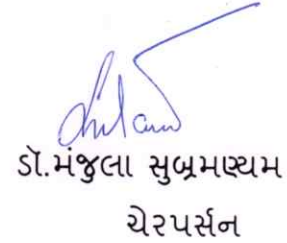 ડૉ.મંજુલા સુબ્રમણ્યમ
ચેરપર્સન